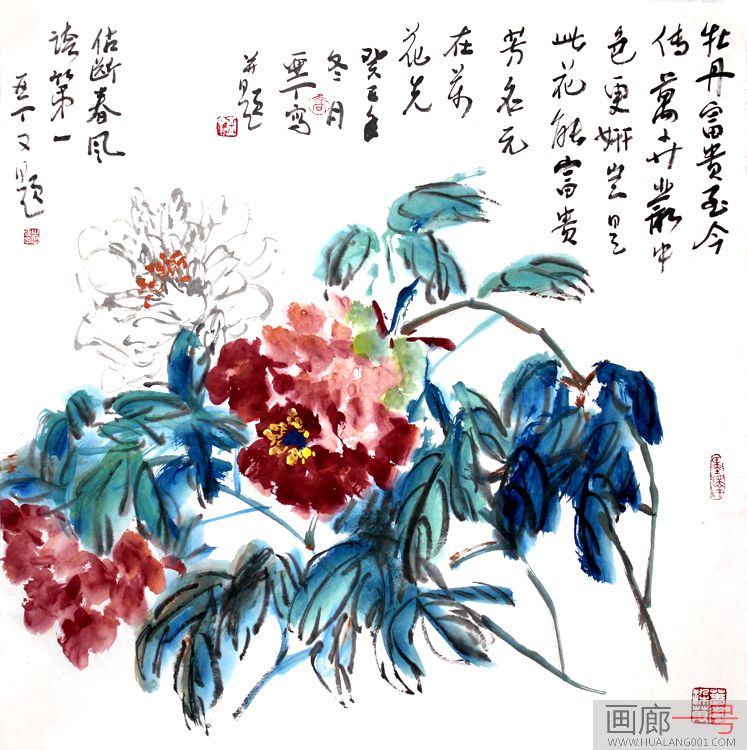 牡丹富贵至今
传萬卉叢中
色更妍岂是
此花能富贵
芳名元
在萬
花先
癸巳年
冬月
亚丁写
并题
佔断春风
第一
亚丁又题
画廊一号
WWW.HUALANG001.COM